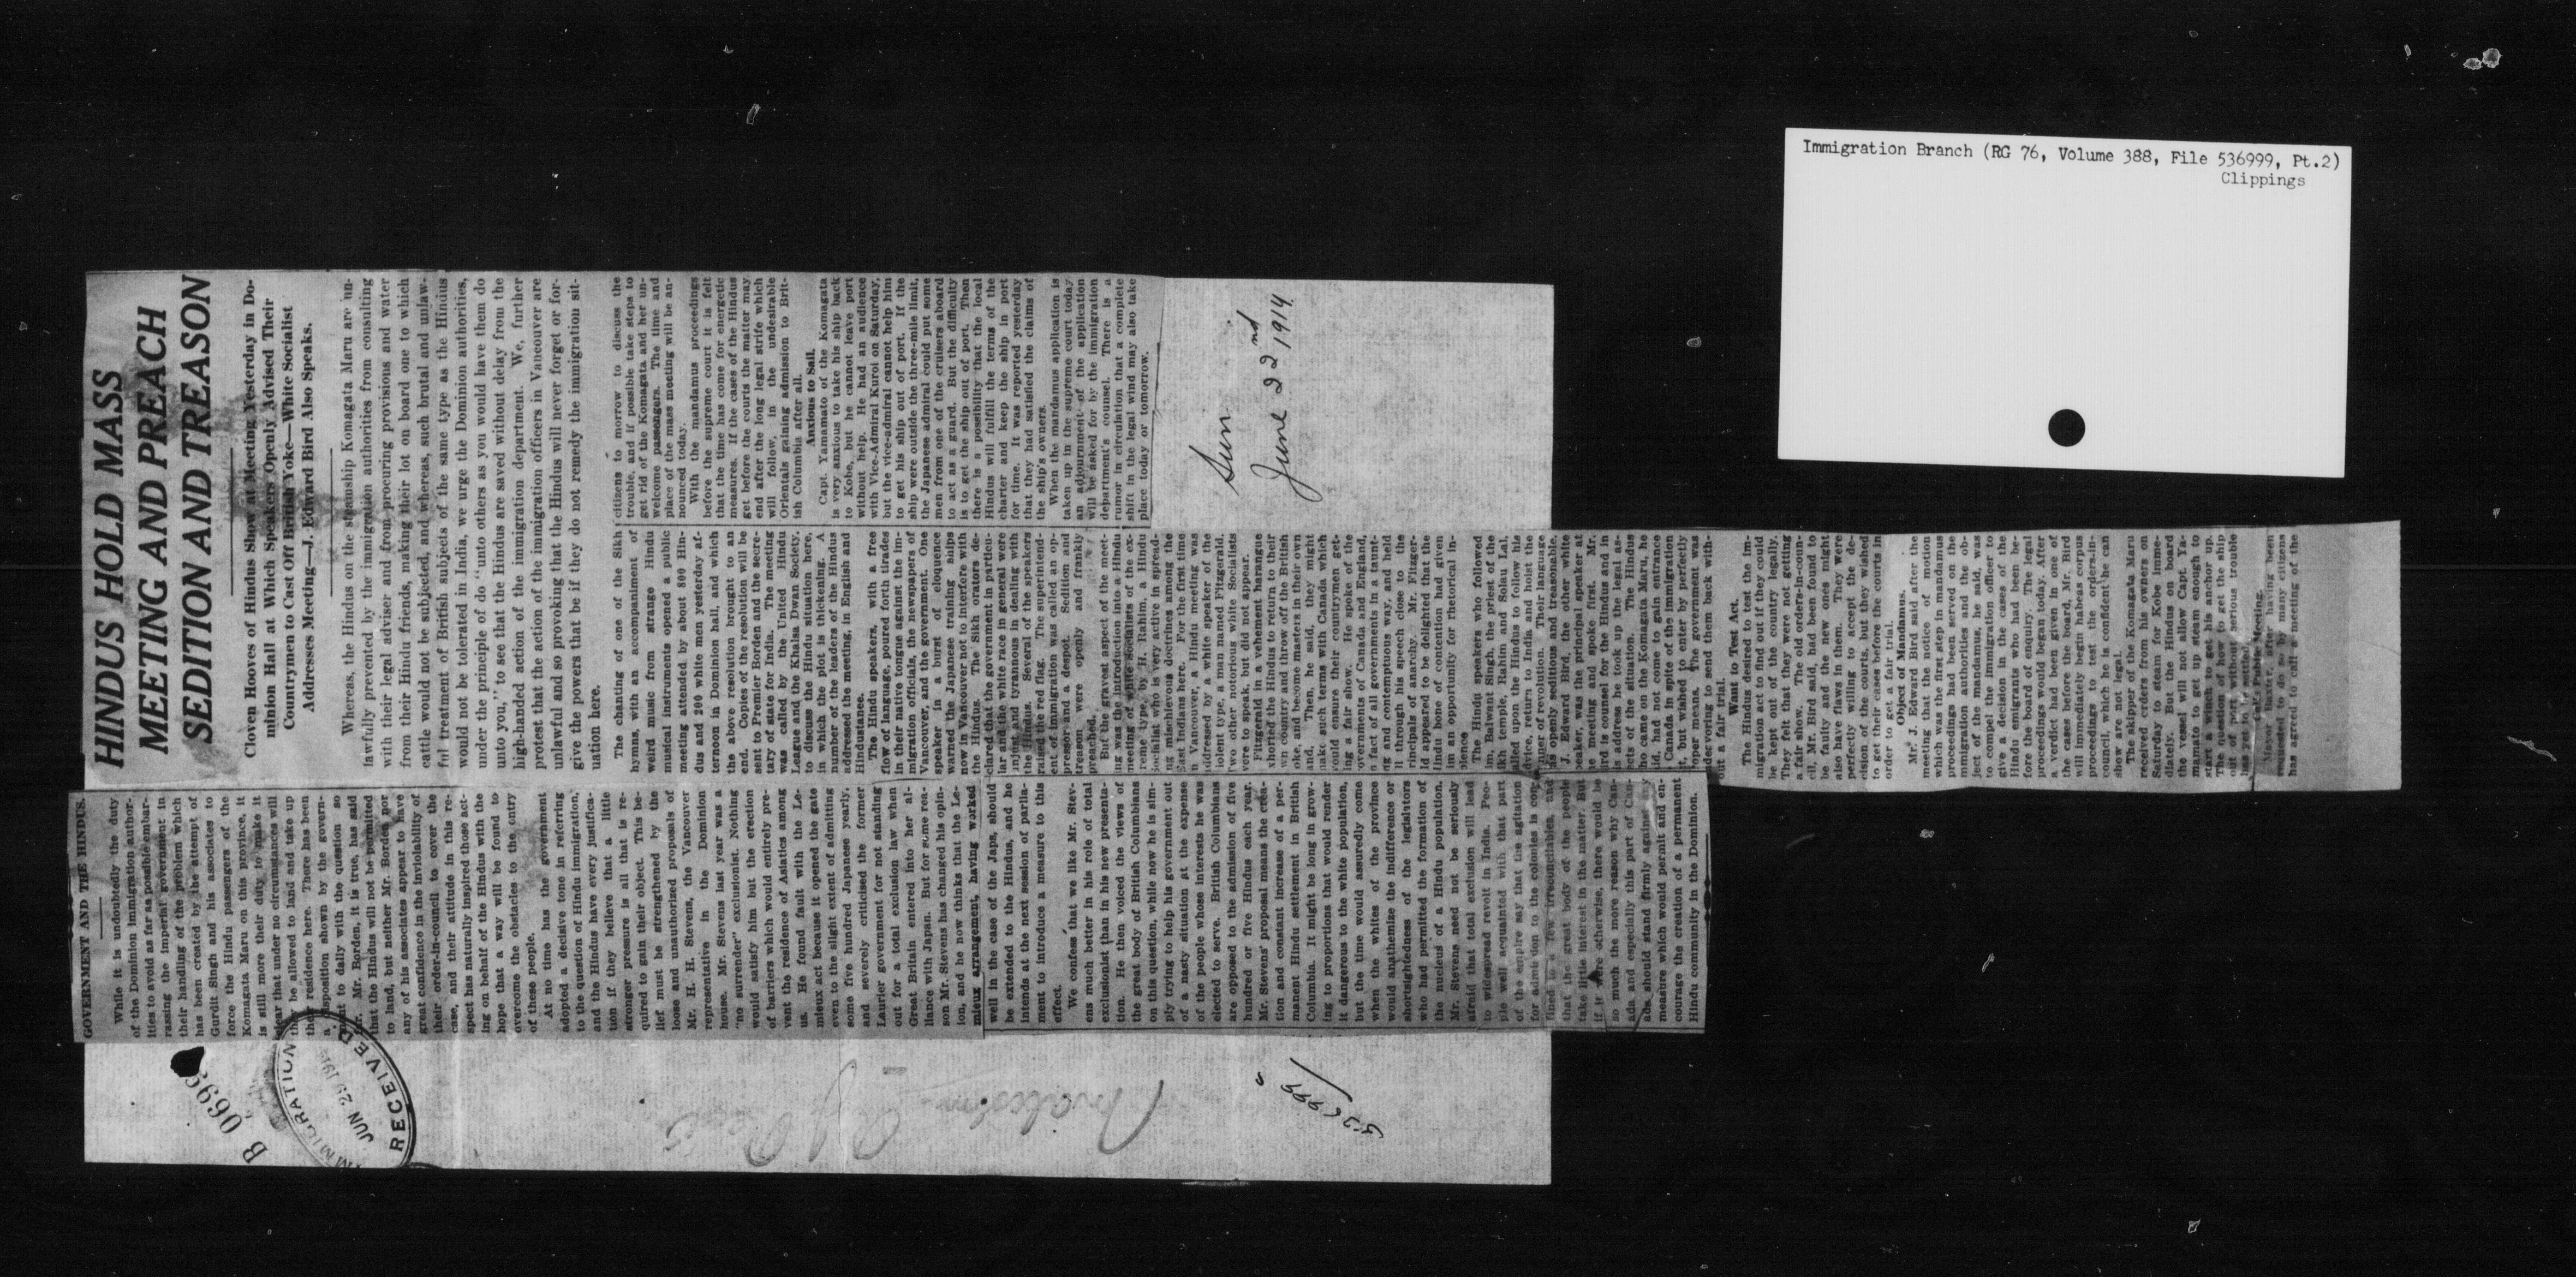 HINDUS HOLD MASS
MEETING AND PREACH
SEDITION AND TREASON
Cloven Hooves of Hindus Show at Meeting Yesterday in Do-
minion Hall at Which Speakers Openly Advised Their
Countrymen to Cast Off British Yoke—White Socialist
Addresses Meeting—J. Edward Bird Also Speaks.
Whereas, the Hindus on the steamship Komagata Maru are un-
lawfully prevented by the immigration authorities from consulting
with their legal adviser and from procuring provisions and water
from their Hindu friends, making their lot on board one to which
cattle would not be subjected, and whereas, such brutal and unlaw-
ful treatment of British subjects of the same type as the Hindus
would not be tolerated in India, we urge the Dominion authorities,
under the principle of do "unto others as you would have them do
unto you," to see that the Hindus are saved without delay from the
high-handed action of the immigration department. We, further
protest that the action of the immigration officers in Vancouver are
unlawful and so provoking that the Hindus will never forget or for-
give the powers that be if they do not remedy the immigration sit-
uation here.
The chanting of one of the Sikh
hymns, with an accompaniment of
weird music from strange Hindu
musical instruments opened a public
meeting attended by about 800 Hin-
dus and 200 white men yesterday af-
ternoon in Dominion hall, and which
the above resolution brought to an
end. Copies of the resolution will be
sent to Premier Borden and the secre-
tary of state for India. The meeting
was called by the United Hindu
League and the Khalsa Dwan Society,
to discuss the Hindu situation here,
in which the plot is thickening. A
number of the leaders of the Hindus
addressed the meeting, in English and
Hindustanee.
The Hindu speakers, with a free
flow of language, poured forth tirades
in their native tongue against the im-
migration officials, the newspapers of
Vancouver, and the government. One
speaker in a burst of eloquence
warned the Japanese training ships
now in Vancouver not to interfere with
the Hindus. The Sikh orators de-
clared that the government in particu-
lar and the white race in general were
unjust and tyrannous in dealing with
the Hindus. Several of the speakers
raised the red flag. The superintend-
ent of immigration was called an op-
pressor and a despot. Sedition and
treason were openly and frankly
preached.
But the gravest aspect of the meet-
ing was the introduction into a Hindu
meeting of white socialists of the ex-
treme type, by H. Rahim, a Hindu
socialist who is very active in spread-
ing mischievous doctrines among the
East Indians here. For the first time
in Vancouver, a Hindu meeting was
addressed by a white speaker of the
violent type, a man named Fitzgerald.
Two other notorious white socialists
were to speak, but did not appear.
Fitzgerald in a vehement harangue
exhorted the Hindus to return to their
own country and throw off the British
yoke, and become masters in their own
land. Then, he said, they might
make such terms with Canada which
would ensure their countrymen get-
ting a fair show. He spoke of the
governments of Canada and England,
in fact of all governments in a taunt-
ing and contemptuous way, and held
all through his speech close to the
principals of anarchy. Mr. Fitzger-
ald appeared to be delighted that the
Hindu bone of contention had given
him an opportunity for rhetorical in-
solence.
The Hindu speakers who followed
him, Balwant Singh, the priest of the
Sikh temple, Rahim, and Solau Lal,
called upon the Hindus to follow his
advice, return to India and hoist the
banner of revolution. Their language
was openly seditious and treasonable.
J. Edward Bird, the other white
speaker, was the principal speaker at
the meeting and spoke first. Mr.
Bird is counsel for the Hindus and in
his address he took up the legal as-
pects of the situation. The Hindus
who came on the Komagata Maru, he
said, had not come to gain entrance
to Canada in spite of the immigration
act, but wished to enter by perfectly
proper means. The government was
endeavoring to send them back with-
out a fair trial.
Want to Test Act.
The Hindus desired to test the im-
migration act to find out if they could
be kept out of the country legally.
They felt that they were not getting
a fair show. The old orders-in-coun-
cil, Mr. Bird said, had been found to
be faulty and the new ones might
also have flaws in them. They were
perfectly willing to accept the de-
cision of the courts, but they wished
to get their cases before the courts in
order to get a fair trial.
Object of Mandamus.
Mr. J. Edward Bird said after the
meeting that the notice of motion
which was the first step in mandamus
proceedings had been served on the
immigration authorities and the ob-
ject of the mandamus, he said, was
to compel the immigration officer to
give a decision in the cases of the
Hindu emigrants who had been be-
fore the board of enquiry. The legal
proceedings would began today. After
a verdict had been given in one of
the cases before the board, Mr. Bird
will immediately begin habeas corpus
proceedings to test the orders-in-
council, which he is confident he can
show are not legal.
The skipper of the Komagata Maru
received orders from his owners on
Saturday to steam for Kobe imme-
diately. But the Hindus on board
the vessel will not allow Capt. Ya-
mamato to get up steam enough to
start a winch to get his anchor up.
The question of how to get the ship
out of port without serious trouble
has yet to be settled.
Call Public Meeting.
Mayor Baxter, after having been
requested to do so by many citizens
has agreed to call a meeting of the
citizens to morrow to discuss the
trouble, and if possible take steps to
get rid of the Komagata and her un-
welcome passengers. The time and
place of the mass meeting will be an-
nounced today.
With the mandamus proceedings
before the supreme court it is felt
that the time has come for energetic
measures. If the cases of the Hindus
get before the courts the matter may
end after the long legal strife which
will follow, in the undesirable
Orientals gaining admission to Brit-
ish Columbia after all.
Anxious to Sail.
Capt. Yamamato of the Komagata
is very anxious to take his ship back
to Kobe, but he cannot leave port
without help. He had an audience
with Vice-Admiral Kuroi on Saturday,
but the vice-admiral cannot help him
to get his ship out of port. If the
ship were outside the three-mile limit,
the Japanese admiral could put some
men from one of the cruisers aboard
to act as a guard. But the difficulty
is to get the ship out of port. Then
there is a possibility that the local
Hindus will fulfill the terms of the
charter and keep the ship in port
for time. It was reported yesterday
that they had satisfied the claims of
the ship's owners.
When the mandamus application is
taken up in the supreme court today
an adjournment of the application
will be asked for by the immigration
department's counsel. There is a
rumor in circulation that a complete
shift in the legal wind may also take
place today or tomorrow.
Sun
June 22nd 1914
GOVERNMENT AND THE HINDUS.
While it is undoubtedly the duty
of the Dominion immigration author-
ities to avoid as far as possible embar-
rassing the imperial government in
their handling of the problem which
has been created by the attempt of
Gurdit Singh and his associates to
force the Hindu passengers of the
Komagata Maru on this province, it
is still more their duty to make it
clear that under no circumstances will
they be allowed to land and take up
their residence here. There has been
a disposition shown by the govern-
ment to dally with the question so
far. Mr. Borden, it is true, has said
that the Hindus will not be permitted
to land, but neither Mr. Borden nor
any of his associates appear to have
great confidence in the inviolability of
their order-in-council to cover the
case, and their attitude in this re-
spect has naturally inspired those act-
ing on behalf of the Hindus with the
hope that a way will be found to
overcome the obstacles to the entry
of these people.
At no time has the government
adopted a decisive tone in referring
to the question of Hindu immigration,
and the Hindus have every justifica-
tion if they believe that a little
stronger pressure is all that is re-
quired to gain their object. This be-
lief must be strengthened by the
loose and unauthorized proposals of
Mr. H. H. Stevens, the Vancouver
representative in the Dominion
house. Mr. Stevens last year was a
"no surrender" exclusionist. Nothing
would satisfy him but the erection
of barriers which would entirely pre-
vent the residence of Asiatics among
us. He found fault with the Le-
mieux act because it opened the gate
even to the slight extent of admitting
some five hundred Japanese yearly,
and severely criticised the former
Laurier government for not standing
out for a total exclusion law when
Great Britain entered into her al-
liance with Japan. But for some rea-
son Mr. Stevens has changed his opin-
ion, and he now thinks that the Le-
mieux arrangement, having worked
well in the case of the Japs, should
be extended to the Hindus, and he
intends at the next session of parlia-
ment to introduce a measure to this
effect.
We confess that we like Mr. Stev-
ens much better in his role of total
exclusionist than in his new presenta-
tion. He then voiced the views of
the great body of British Columbians
on this question, while now he is sim-
ply trying to help his government out
of a nasty situation at the expense
of the people whose interests he was
elected to serve. British Columbians
are opposed to the admission of five
hundred or five Hindus each year.
Mr. Stevens' proposal means the crea-
tion and constant increase of a per-
manent Hindu settlement in British
Columbia. It might be long in grow-
ing to proportions that would render
it dangerous to the white population,
but the time would assuredly come
when the whites of the province
would anathemize the indifference or
shortsightedness of the legislators
who had permitted the formation of
the nucleus of a Hindu population.
Mr. Stevens need not be seriously
afraid that total exclusion will lead
to widespread revolt in India. Peo-
ple well acquainted with that part
of the empire say that the agitation
for admission to the colonies is con-
fined to a few irreconcilables, and
that the great body of the people
take little interest in the matter. But
if it were otherwise, there would be
so much the more reason why Can-
ada and especially this part of Can-
ada should stand firmly against any
measure which would permit and en-
courage the creation of a permanent
Hindu community in the Dominion.
IMMIGRATION
JUN 29 1914
RECEIVED
Immigration Branch (RG 76, Volume 388, File 536999, Pt.2)
Clippings